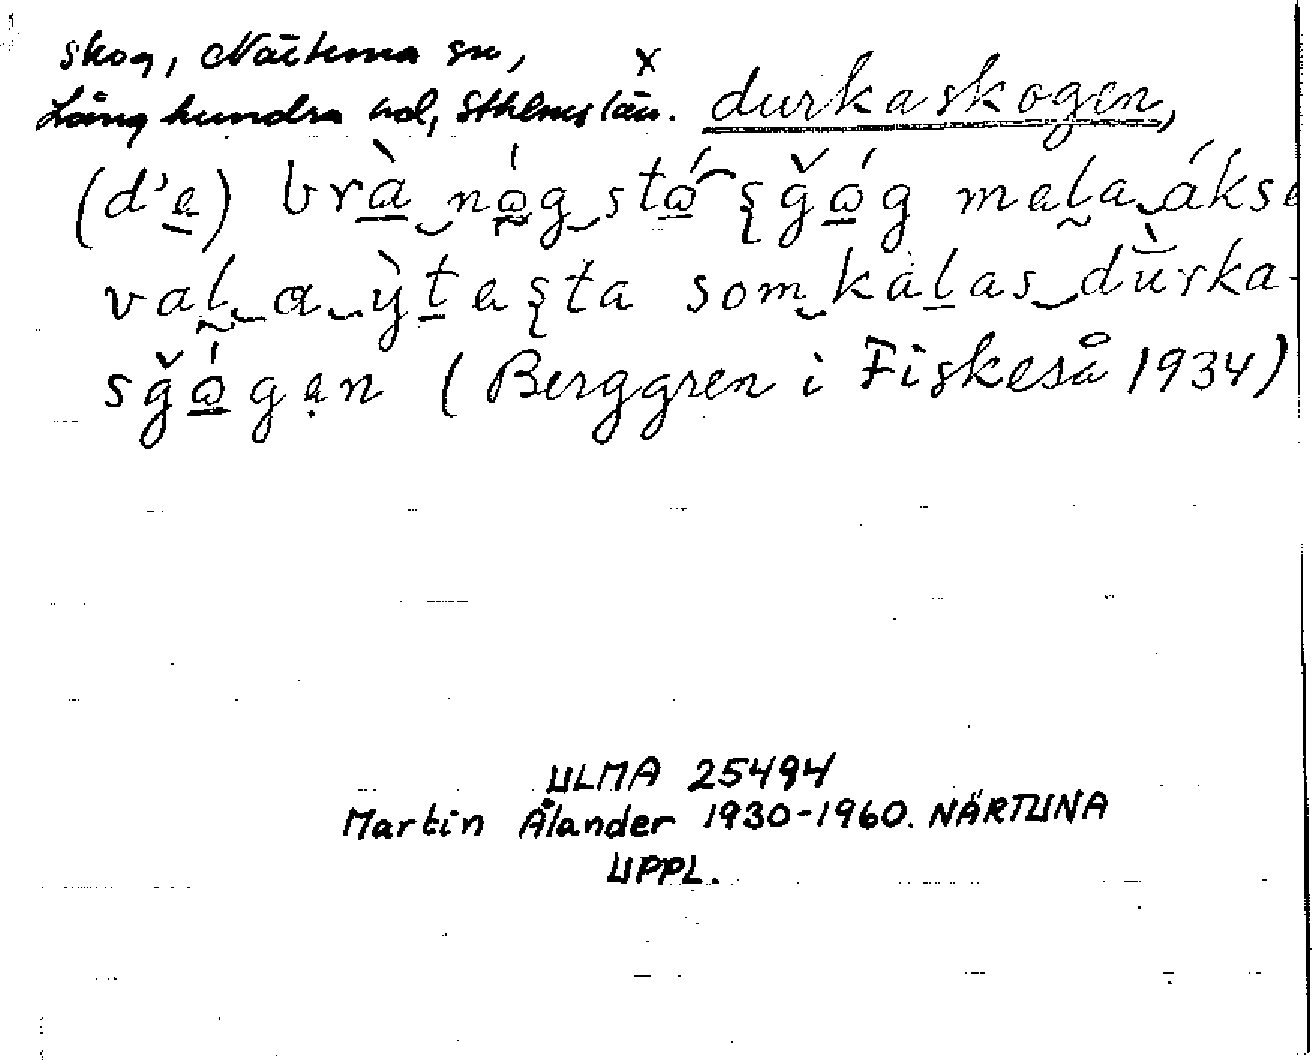 skog, Närtuna sn,
Långhundra hd, Sthlms län. x durkaskogen,
(d'e) brà nóg stó sǧóg mela ákse
val a ỳtesta som kalas dùrka-
sǧógen (Berggren i Fiskeså 1934)
ULMA 25494
Martin Ålander 1930-1960. NÄRTUNA
UPPL.